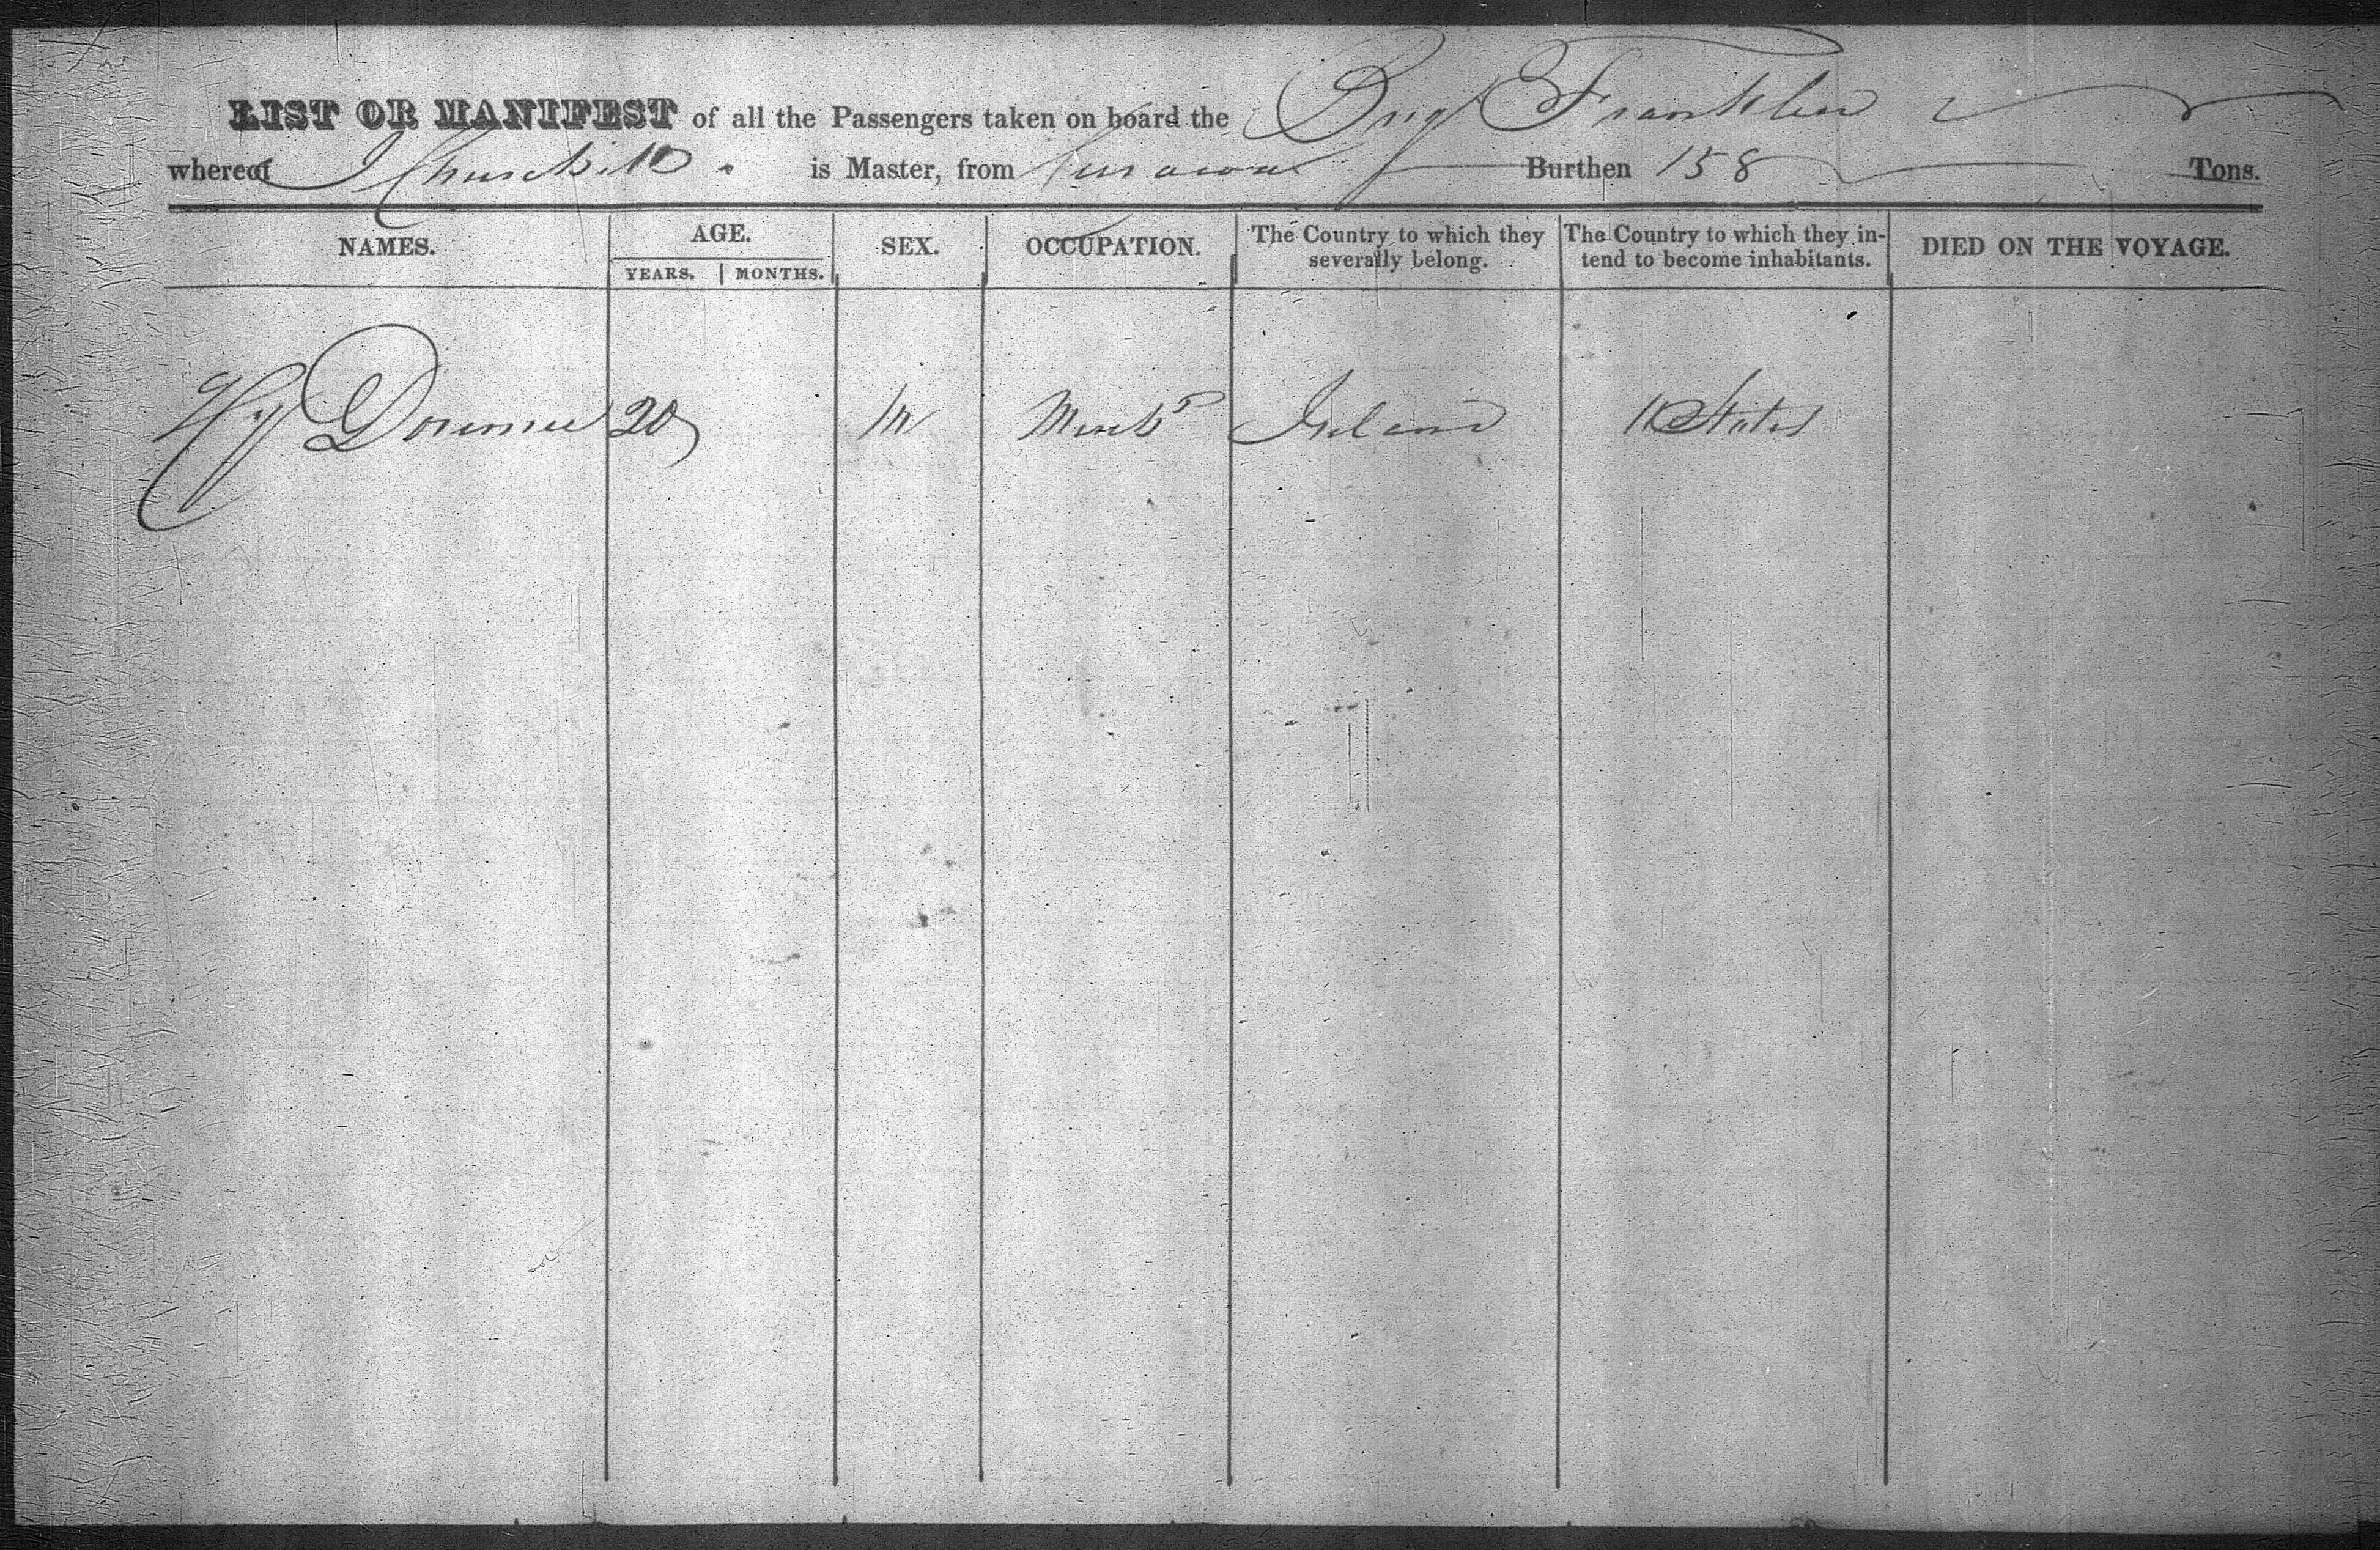 LIST OR MANIFEST of all the Passengers taken on board the Brig Franklin
whereof J Churchill is Master, from Curacoa Burthen 158 Tons.
NAMES. AGE. SEX. OCCUPATION. The Country to which they severally belong. The Country to which they intend to become inhabitants. DIED ON THE VOYAGE.
YEARS. MONTHS.
Hy 20 M Mercht Ireland U States